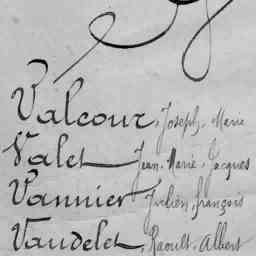 Valcour, Joseph, Marie
Valet Jean Marie, Jacques
Vannier Julien, françois
Vaudelet, Raoult, Albert